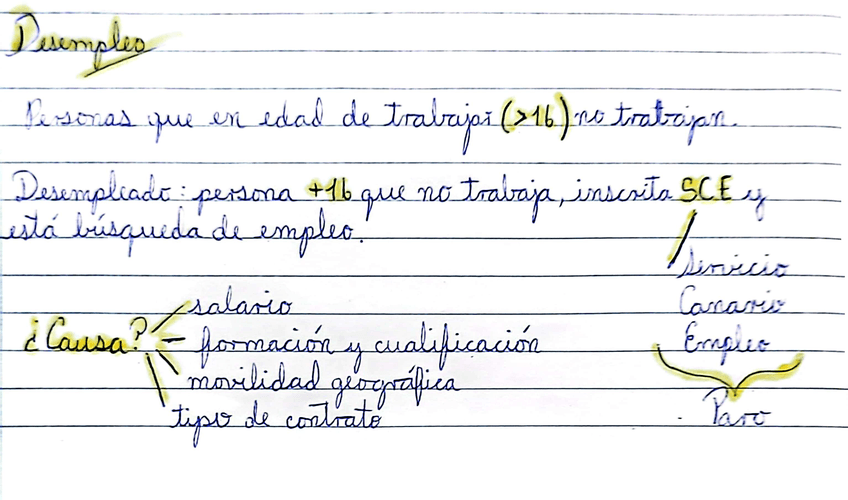 Desempleo
Personas que en edad de trabajar (>16) no trabajan.
Desempleado: persona +16 que no trabaja, inscrita SCE y
está búsqueda de empleo.
Servicio
Canario
Empleo
Paro
¿Causa?
salario
formación y cualificación
movilidad geográfica
tipo de contrato